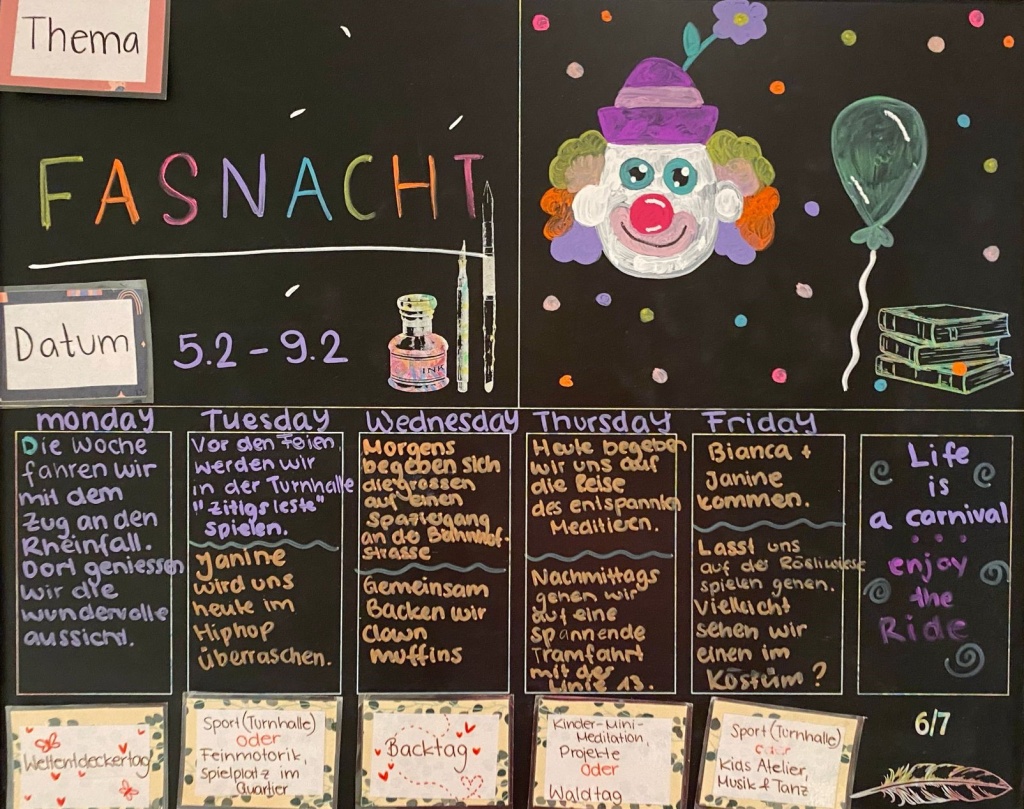 Thema
FASNACHT
Datum
5.2 - 9.2
INK
monday
Die Woche
fahren wir
mit dem
Zug an den
Rheinfall.
Dort geniessen
wir die
wundervolle
aussicht.
Weltentdeckertag
Tuesday
Vor den Feien,
werden wir
in der Turnhalle
"Zitigsleste"
spielen.
Yanine
wird uns
heute im
Hiphop
überraschen.
Sport (Turnhalle)
oder
Feinmotorik,
Spielplatz im
Quartier
Wednesday
Morgens
begeben sich
die grossen
auf einen
Spaziegang
an de Bahnhof-
strasse
Gemeinsam
Backen wir
Clown
muffins
Backtag
Thursday
Heute begeben
wir uns auf
die Reise
des entspannten
Meditieren.
Nachmittags
gehen wir
auf eine
spannende
Tramfahrt
mit der
Linie 13.
Kinder-Mini-
Meditation,
Projekte
Oder
Waldtag
Friday
Bianca +
Janine
kommen.
Lasst uns
auf de Rösliwiese
spielen gehen.
Vielleicht
sehen wir
einen im
Köstüm?
Sport (Turnhalle)
oder
Kids Atelier,
Musik & Tanz
Life
is
a carnival
...
enjoy
the
Ride
6/7